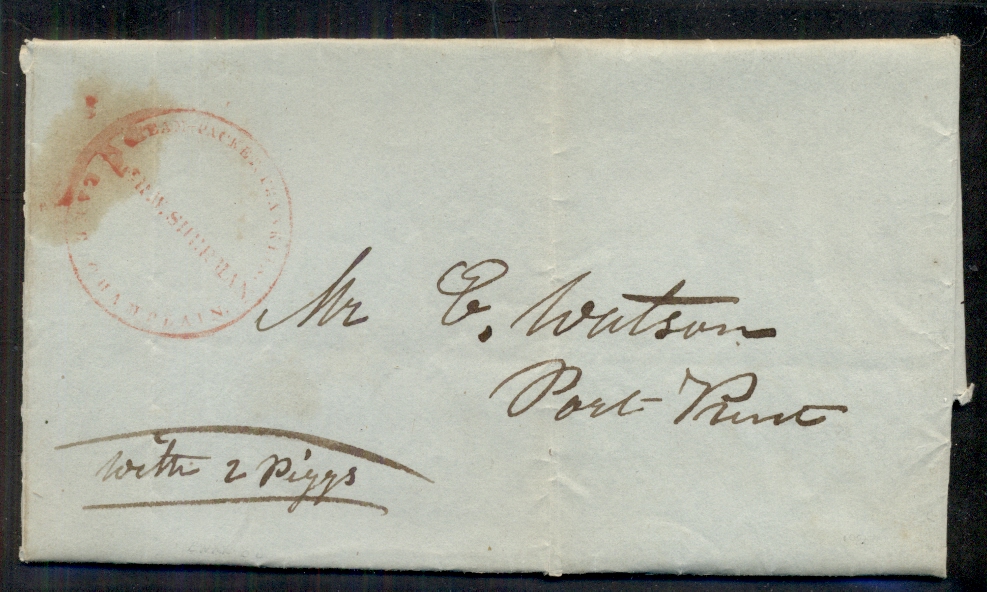 STEAM PACKET FRANKLIN
R.W. SHERMAN
CHAMPLAIN.
Mr E. Watson
Port Kent
with 2 Piggs